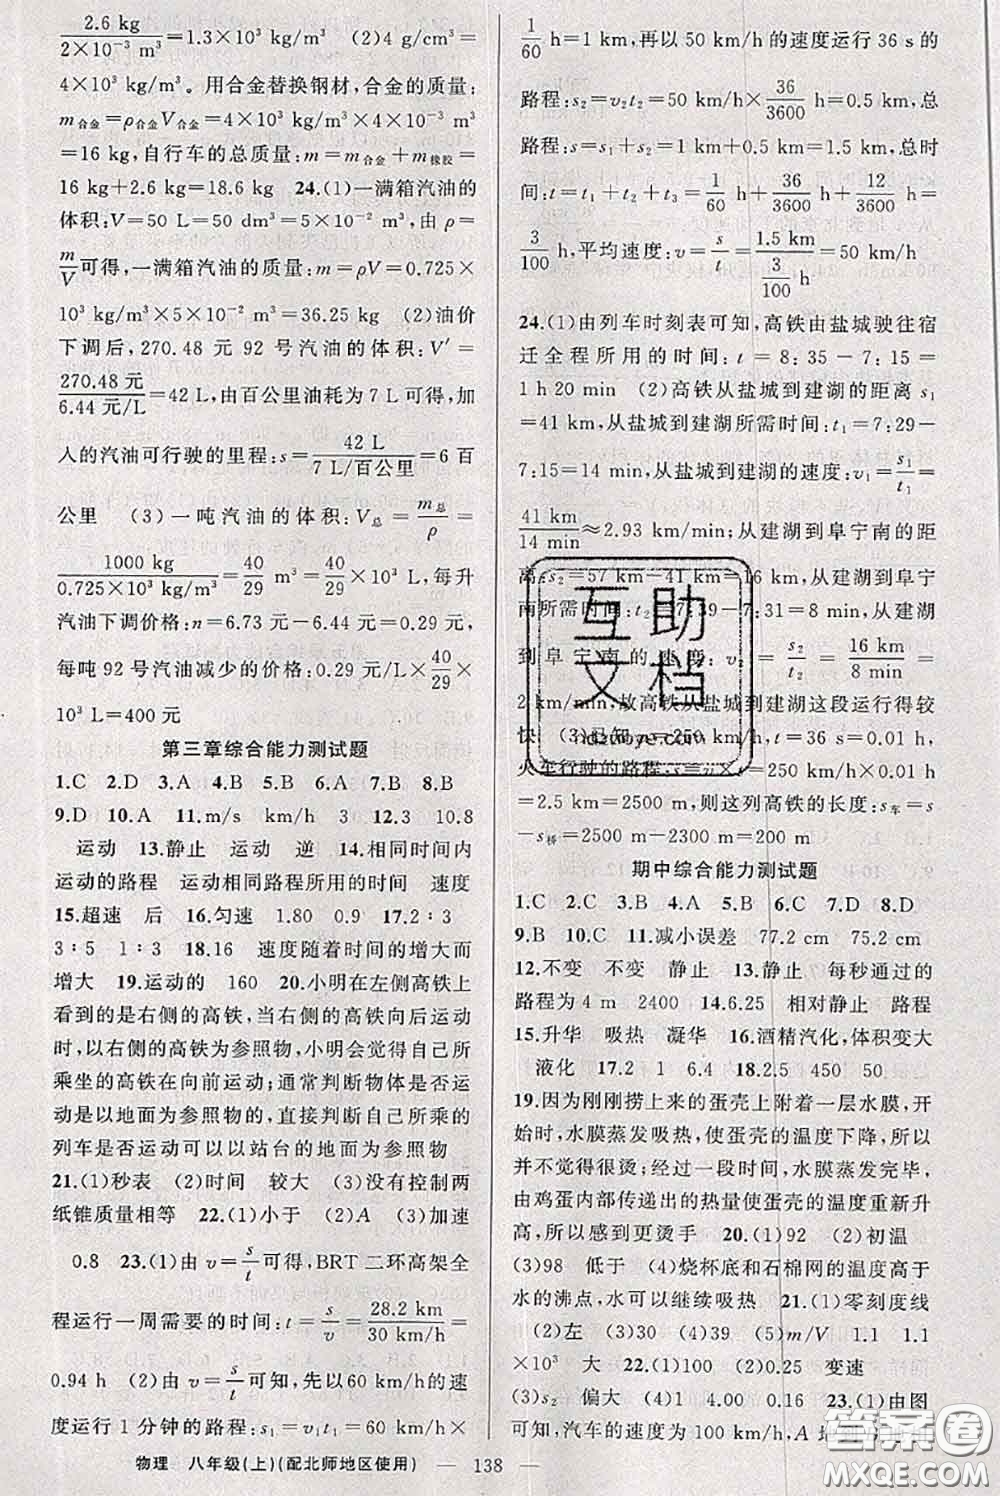 2.6 kg/(2×10⁻³ m³)=1.3×10³ kg/m³ (2)4 g/cm³=
4×10³ kg/m³。用合金替换钢材,合金的质量:
m合金=ρ合金V合金=4×10³ kg/m³×4×10⁻³ m³
=16 kg,自行车的总质量:m=m合金+m橡胶=
16 kg+2.6 kg=18.6 kg 24.(1)一满箱汽油的
体积:V=50 L=50 dm³=5×10⁻² m³,由 ρ=
m/V可得,一满箱汽油的质量:m=ρV=0.725×
10³ kg/m³×5×10⁻² m³=36.25 kg (2)油价
下调后,270.48 元 92 号汽油的体积:V′=
270.48 元/(6.44 元/L)=42 L,由百公里油耗为 7 L 可得,加
入的汽油可行驶的里程:s=42 L/(7 L/百公里)=6 百
公里 (3)一吨汽油的体积:V总=m总/ρ=
1000 kg/(0.725×10³ kg/m³)=40/29 m³=40/29×10³ L,每升
汽油下调价格:n=6.73 元-6.44 元=0.29 元,
每吨 92 号汽油减少的价格:0.29 元/L×40/29×
10³ L=400 元
第三章综合能力测试题
1.C 2.D 3.A 4.B 5.B 6.A 7.B 8.B
9.D 10.A 11.m/s km/h 3 12.3 10.8
运动 13.静止 运动 逆 14.相同时间内
运动的路程 运动相同路程所用的时间 速度
15.超速 后 16.匀速 1.80 0.9 17.2∶3
3∶5 1∶3 18.16 速度随着时间的增大而
增大 19.运动的 160 20.小明在左侧高铁上
看到的是右侧的高铁,当右侧的高铁向后运动
时,以右侧的高铁为参照物,小明会觉得自己所
乘坐的高铁在向前运动;通常判断物体是否运动
是以地面为参照物的,直接判断自己所乘的
列车是否运动可以以站台的地面为参照物
21.(1)秒表 (2)时间 较大 (3)没有控制两
纸锥质量相等 22.(1)小于 (2)A (3)加速
0.8 23.(1)由 v=s/t可得,BRT 二环高架全
程运行一周需要的时间:t=s/v=28.2 km/(30 km/h)=
0.94 h (2)由 v=s/t可知,先以60 km/h 的速
度运行 1 分钟的路程:s₁=v₁t₁=60 km/h×
1/60 h=1 km,再以 50 km/h 的速度运行 36 s 的
路程:s₂=v₂t₂=50 km/h×36/3600 h=0.5 km,总
路程:s=s₁+s₂=1 km+0.5 km=1.5 km,总时
间:t=t₁+t₂+t₃=1/60 h+36/3600 h+12/3600 h=
3/100 h,平均速度:v=s/t=1.5 km/(3/100 h)=50 km/h
24.(1)由列车时刻表可知,高铁由盐城驶往宿
迁全程所用的时间:t=8:35-7:15=
1 h 20 min (2)高铁从盐城到建湖的距离 s₁
=41 km,从盐城到建湖所需时间:t₁=7:29-
7:15=14 min,从盐城到建湖的速度:v₁=s₁/t₁=
41 km/14 min≈2.93 km/min;从建湖到阜宁南的距
离:s₂=57 km-41 km=16 km,从建湖到阜宁
南所需时间:t₂=7:39-7:31=8 min,从建湖
到阜宁南的速度:v₂=s₂/t₂=16 km/8 min=
2 km/min,故高铁从盐城到建湖这段运行得较
快 (3)已知 v=250 km/h,t=36 s=0.01 h,
火车行驶的路程:s=v×t=250 km/h×0.01 h
=2.5 km=2500 m,则这列高铁的长度:s车=s
-s桥=2500 m-2300 m=200 m
期中综合能力测试题
1.C 2.C 3.B 4.A 5.B 6.C 7.D 8.D
9.B 10.C 11.减小误差 77.2 cm 75.2 cm
12.不变 不变 静止 13.静止 每秒通过的
路程为 4 m 2400 14.6.25 相对静止 路程
15.升华 吸热 凝华 16.酒精汽化,体积变大
液化 17.2 1 6.4 18.2.5 450 50
19.因为刚刚捞上来的蛋壳上附着一层水膜,开
始时,水膜蒸发吸热,使蛋壳的温度下降,所以
并不觉得很烫;过一段时间,水膜蒸发完毕,
由鸡蛋内部传递出的热量使蛋壳的温度重新升
高,所以感到更烫手 20.(1)92 (2)初温
(3)98 低于 (4)烧杯底和石棉网的温度高于
水的沸点,水可以继续吸热 21.(1)零刻度线
(2)左 (3)30 (4)39 (5)m/V 1.1 1.1
×10³ 大 22.(1)100 (2)0.25 变速
(3)s₂ 偏大 (4)1 4.00 0.16 23.(1)由图
可知,汽车的速度为 100 km/h,A 地
物理 八年级(上)(配北师地区使用) — 138 —
互助
文档
答案圈
MXQE.COM